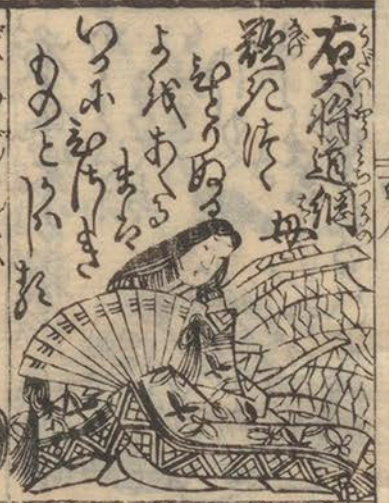 右大将道綱母
歎きつゝ
ひとりぬる
よのあくる
まは
いかにひさしき
ものとかはしる